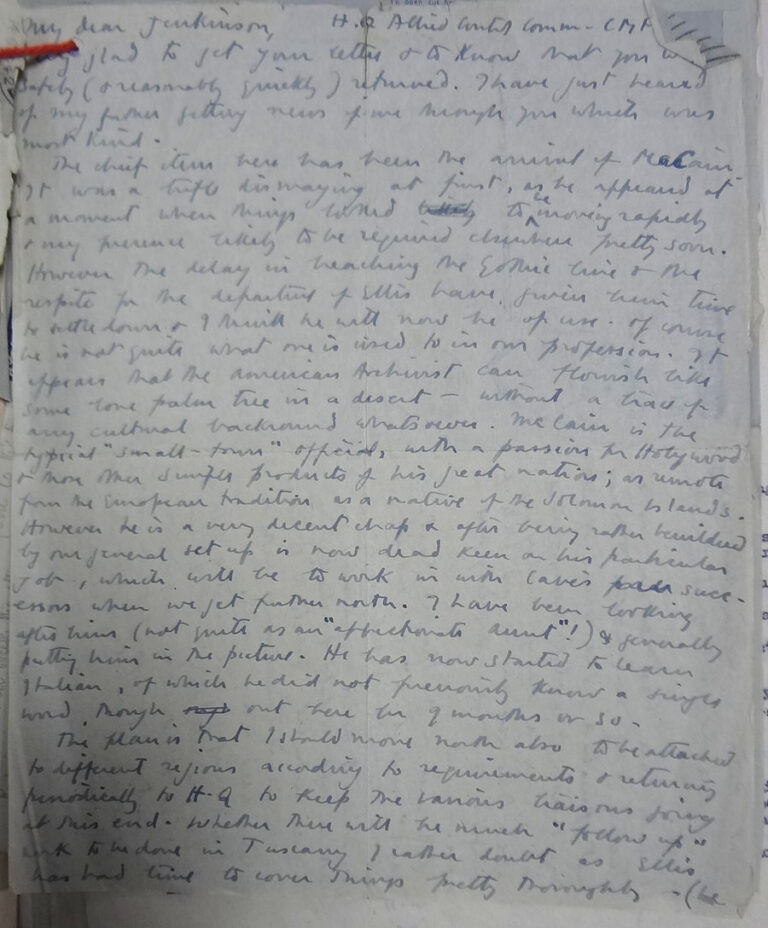 My dear Jenkinson, H.Q Allied Contl Comm - CMF
Very glad to get your letter & to know that you
safely (& reasonably quickly) returned. I have just heard
of my father getting news of me through you which was
most kind.
The chief item here has been the arrival of McCain
It was a trifle dismaying at first, as he appeared at
a moment when things looked likely to be moving rapidly
& my presence likely to be required elsewhere pretty soon.
However the delay in breaching the Gothic line & the
respite for the departure of Ellis have given him time
to settle down & I think he will now be of use. Of course
he is not quite what one is used to in our profession. It
appears that the American Archivist can flourish like
some lone palm tree in a desert - without a trace of
any cultural background whatsoever. McCain is the
typical "small-town" official, with a passion for Hollywood
& those other simple products of his great nation; as remote
from the European tradition as a native of the Solomon Islands.
However he is a very decent chap & after being rather bewildered
by our general set up is now dead keen on his particular
job, which will be to work in with Cave's succ-
essors when we get further north. I have been looking
after him (not quite as an "affectionate aunt"!) & generally
putting him in the picture. He has now started to learn
Italian, of which he did not previously know a single
word, though out here for 9 months or so.
The plan is that I should move north also to be attached
to different regions according to requirements & returning
periodically to H-Q to keep the various liaisons going
at this end. Whether there will be much "follow up"
work to be done in Tuscany I rather doubt as Ellis
has had time to cover things pretty thoroughly - (he